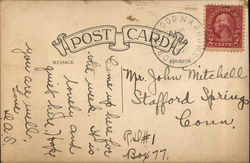 POST CARD
MESSAGE
ADDRESS
Came up here for
the week. It is
lovely and
quiet here. Hope
you are well.
Love
Mr. John Mitchell
Stafford Springs
Conn.
R.D.#1
Box 77.